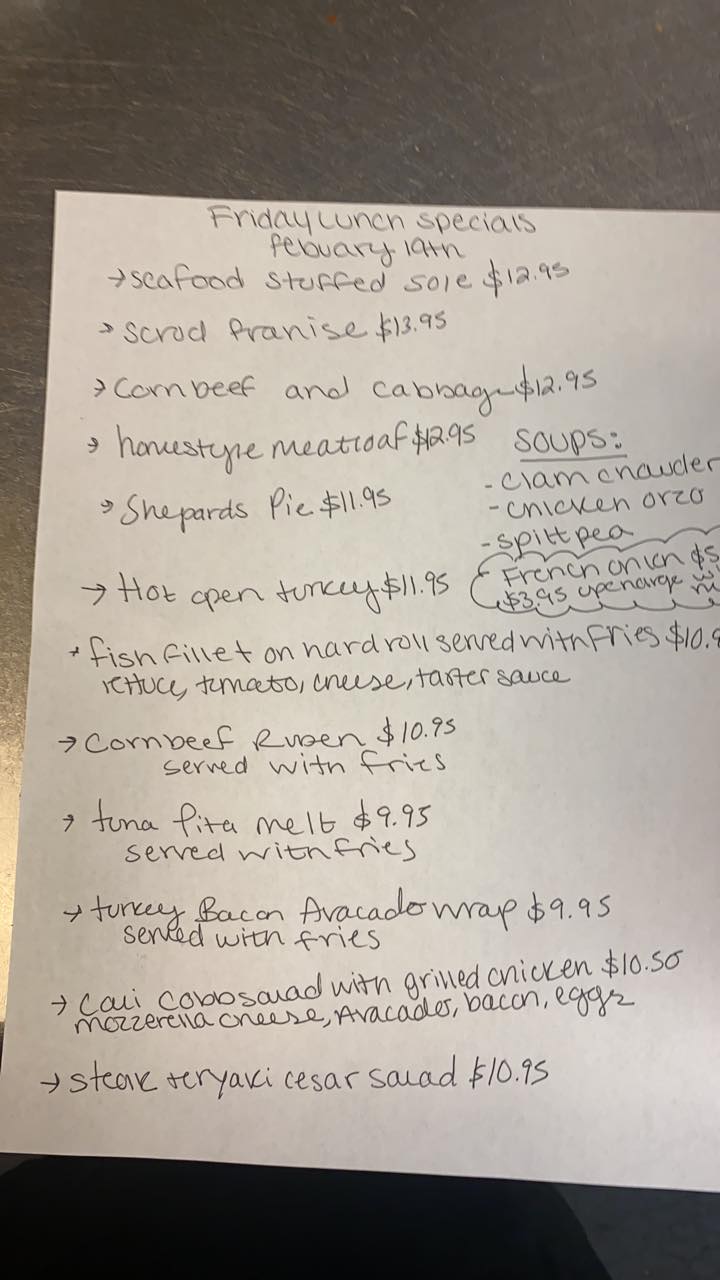 Friday Lunch Specials
Febuary 19th
→ seafood stuffed sole $12.95
→ scrod franise $13.95
→ Cornbeef and cabbage $12.95
→ homestyle meatloaf $12.95
SOUPS:
- clam chowder
- chicken orzo
- split pea
→ Shepards Pie $11.95
→ Hot open turkey $11.95
French onion $5
$3.95 upcharge
→ fish fillet on hard roll served with fries $10.9
lettuce, tomato, cheese, tarter sauce
→ Cornbeef Ruben $10.95
served with fries
→ tuna Pita melt $9.95
served with fries
→ turkey Bacon Avacado wrap $9.95
served with fries
→ Cali Cobb salad with grilled chicken $10.50
mozzerella cheese, Avacado, bacon, eggs
→ steak teryaki cesar salad $10.95